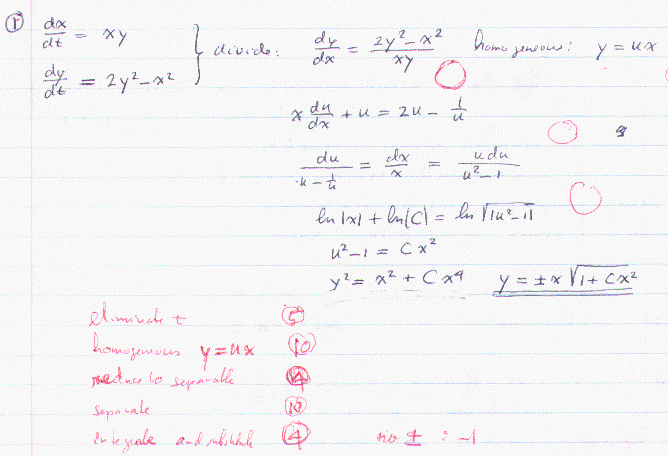 ① dx/dt = xy } divide: dy/dx = (2y²-x²)/(xy) homogeneous: y = ux
dy/dt = 2y²-x²
x du/dx + u = 2u - 1/u
du/(u - 1/u) = dx/x = u du/(u²-1)
ln|x| + ln|C| = ln √|u²-1|
u²-1 = Cx²
y² = x² + Cx⁴ y = ±x√(1+Cx²)
eliminate t ⑤
homogeneous y=ux ⑩
reduce to separable
separate ⑩
integrate and substitute ④ no ± : -1